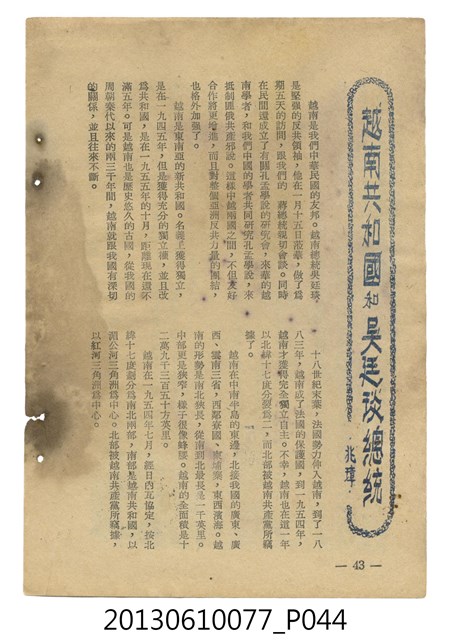 越南共和國和吳廷琰總統
兆璋
越南是我們中華民國的友邦。越南總統吳廷琰,
是堅强的反共領袖,他在一月十五日蒞華,做了爲
期五天的訪問,跟我們的 蔣總統親切會談。同時
在民間還成立了有關孔孟學說的研究會,來華的越
南學者,和我們中國的學者共同研究孔孟學說,來
抵制匪俄共產邪說。這樣中越兩國之間,不但友好
合作將更增進,而且對整個亞洲反共力量的團結,
也格外加强了。
越南是東南亞的新共和國。名義上獲得獨立,
是在一九四五年,但是獲得充分的獨立權,並且改
爲共和國,是在一九五五年的十月,距離現在還不
滿五年。可是越南也是歷史悠久的古國,從我國的
周朝秦代以來的兩三千年間,越南就跟我國有深切
的關係,並且往來不斷。
十八世紀末葉,法國勢力伸入越南,到了一八
八三年,越南成了法國的保護國,到一九五四年,
越南才獲得完全獨立自主。不幸,越南也在這一年
以北緯十七度分裂爲二,而北部被越南共產黨所竊
據了。
越南在中南半島的東邊,北接我國的廣東、廣
西、雲南三省,西鄰寮國、柬埔寨,東西濱海。越
南的形勢是南北狹長,從南到北最長是一千英里。
中部更是狹窄,樣子很像蜂腰。越南的全面積是十
二萬九千三百五十方英里。
越南在一九五四年七月,經日內瓦協定,按北
緯十七度劃分爲南北兩部,南部是越南共和國,以
湄公河三角洲爲中心。北部被越南共產黨所竊據,
以紅河三角洲爲中心。
— 43 —
20130610077_P044